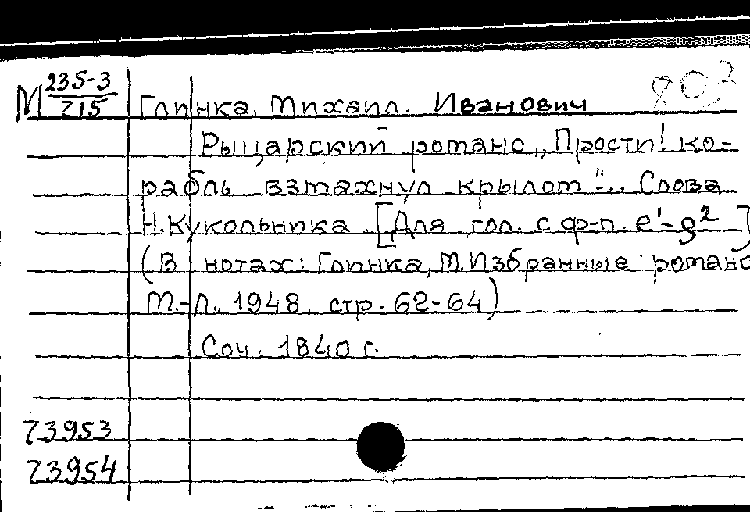 М 235-3
715
Глинка, Михаил Иванович
Рыцарский романс „Прости! ко-
рабль взмахнул крылом"... Слова
Н. Кукольника [Для гол. с ф-п. e¹-g²]
(В нотах: Глинка, М. Избранные романс
М.-Л. 1948, стр. 62-64)
Соч. 1840 г.
73953
73954